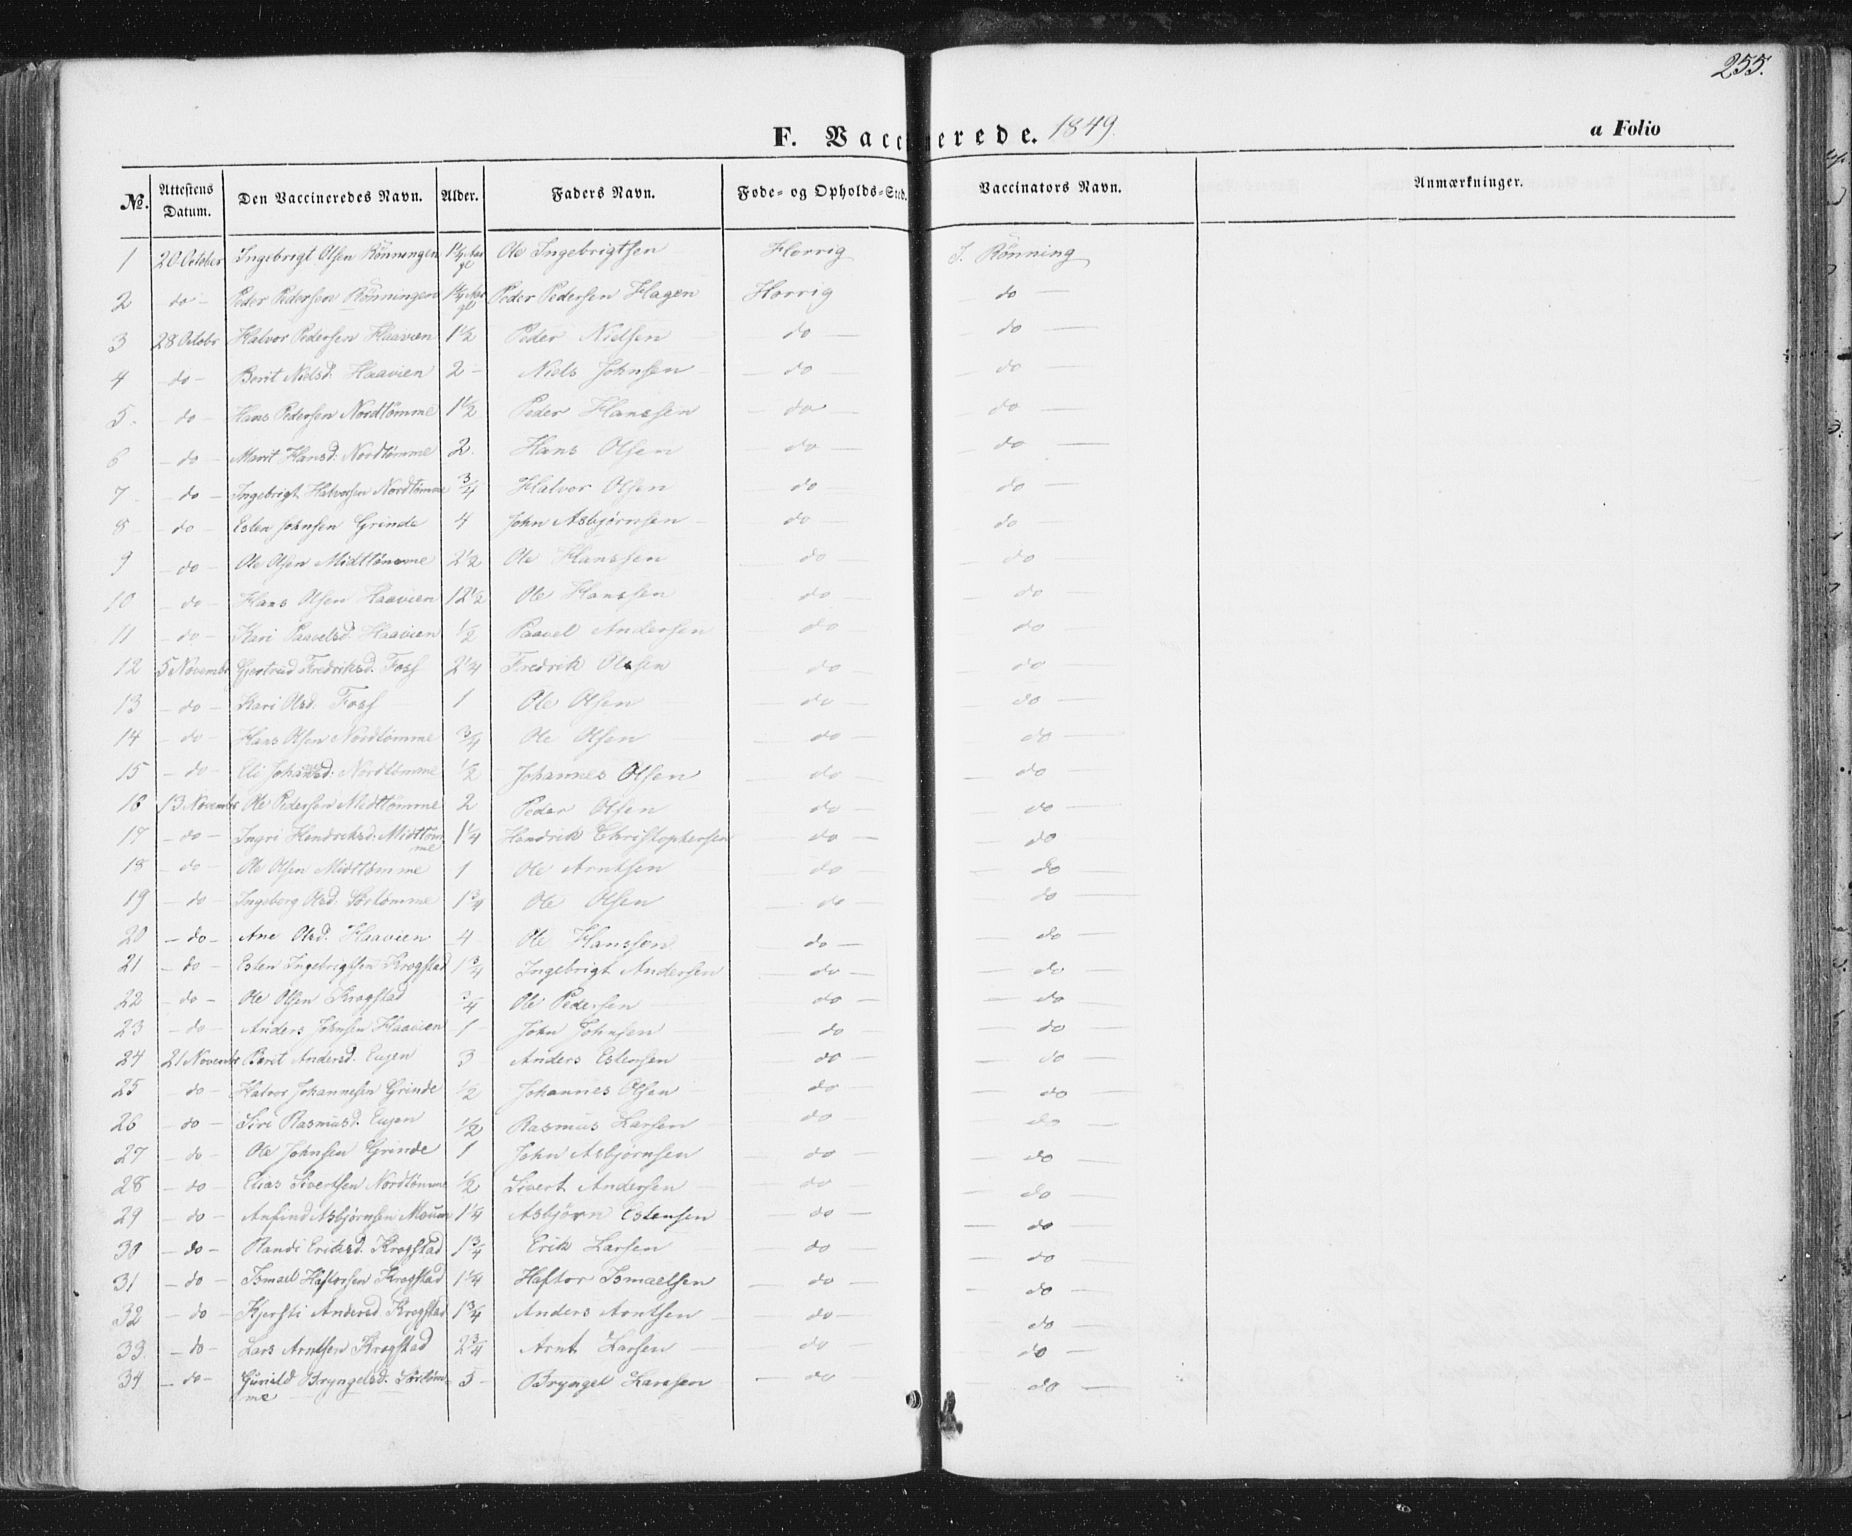 255.
F. Vaccinerede. 1849.
a Folio
No. Attestens Datum. Den Vaccineredes Navn. Alder. Faders Navn. Føde- og Opholds-Sted. Vaccinators Navn. Anmærkninger.
1 20 October Ingebrigt Olsen Rönningen 1 1/4 Aar gl Ole Ingebrigtsen Horrig J. Rönning
2 do Peder Pedersen Rönningen 1 1/4 Aar gl Peder Pedersen Hagen Horrig do
3 28 Octobr Halvor Pedersen Haavien 1 1/2 Peder Nielsen do do
4 do Berit Nielsd: Haavien 2 Niels Johnsen do do
5. do Hans Pedersen Nordtømme 1 1/2 Peder Hanssen do do
6 do Marit Hansd: Nordtømme 2. Hans Olsen do do
7 do Ingebrigt Halvorsen Nordtømme 3/4 Halvor Olsen do do
8 do Esten Johnsen Grinde 4 John Asbjørnsen do do
9 do Ole Olsen Midttømme 2 1/2 Ole Hanssen do do
10 do Hans Olsen Haavien 12 1/2 Ole Hanssen do do
11 do Kari Paavelsd: Haavien 1/2 Paavel Andersen do do
12 5 Novembr Gjertrud Fredriksd. Foss 2 1/4 Fredrik Olssen do do
13 do Kari Olsd. Foss 1 Ole Olsen do do
14 do Hans Olsen Nordtømme 3/4 Ole Olsen do do
15 do Eli Johannsd: Nordtømme 1/2 Johannes Olsen do do
16 13 Novembr Ole Pedersen Midttømme 2 Peder Olsen do do
17 do Ingri Hendriksd: Midttøm me 1 1/4 Hendrik Christophersen do do
18 do Ole Olsen Midttømme 1 Ole Arntsen do do
19 do Ingeborg Olsd. Sørtømme 1 3/4 Ole Olsen do do
20 do Ane Olsd. Haavien 4 Ole Hanssen do do
21 do Esten Ingebrigtsen Krogstad 1 3/4 Ingebrigt Andersen do do
22 do Ole Olsen Krogstad 3/4 Ole Pedersen do do
23 do Anders Johnsen Haavien 1 John Johnsen do do
24 21 Novembr Berit Andersd. Eujen 3 Anders Estensen do do
25 do Halvor Johannesen Grinde 1/2 Johannes Olsen do do
26 do Siri Rasmusd. Eujen 1/2 Rasmus Larsen do do
27 do Ole Johnsen Grinde 1 John Asbjørnsen do do
28 do Elias Sivertsen Nordtømme 1/2 Sivert Andersen do do
29 do Anfind Asbjørnsen 1 1/4 Asbjørn Estensen do do
30 do Randi Eriksd. Krogstad 1 3/4 Erik Larsen do do
31 do Ismael Haftorsen Krogstad 1 1/4 Haftor Ismaelsen do do
32 do Kjersti Andersd Krogstad 1 3/4 Anders Arntsen do do
33. do Lars Arntsen Krogstad 2 3/4 Arnt Larsen do do
34 do Gunild Bryngelsd. Sørtøm- me 5 Bryngel Larssen do do